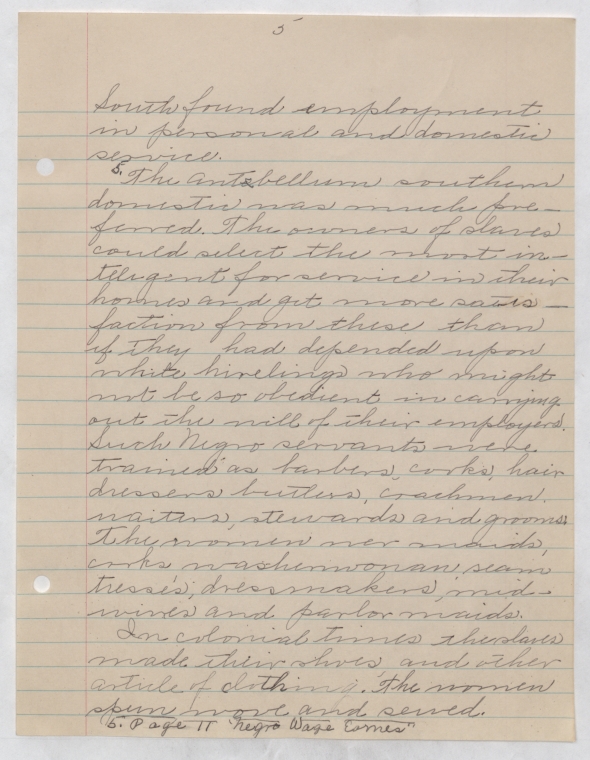 5
South found employment
in personal and domestic
service.
5. The antebellum southern
domestic was much pre-
ferred. The owners of slaves
could select the most in-
teligent for service in their
homes and get more satis-
faction from these than
if they had depended upon
white hirelings who might
not be so obedient in carrying
out the will of their employers.
Such Negro servants were
trained as barbers, cooks, hair
dressers butlers, coachmen.
waiters, stewards and grooms.
The women wer maids,
cooks washerwoman seam
tresses, dressmakers, mid-
wives and parlor maids.
In colonial times the slaves
made their shoes and other
article of clothing. The women
spun wove and sewed.
5. Page 11 "Negro Wage Earner"